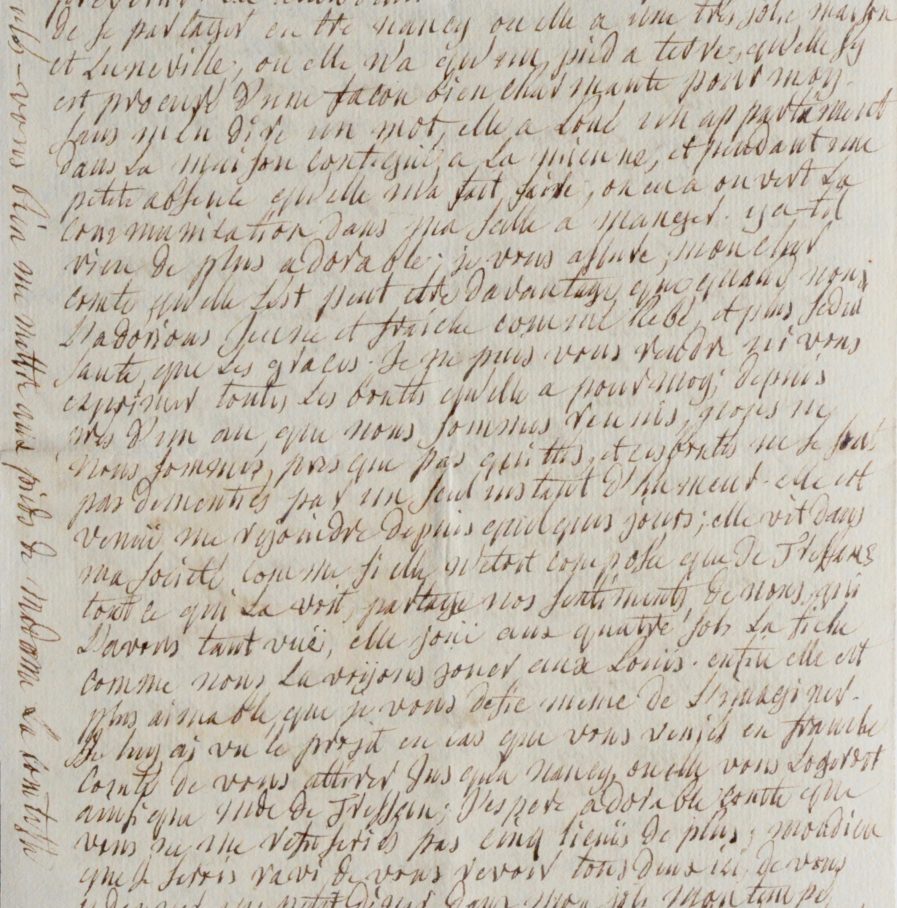 de se partager entre nancy ou elle a une tres jolie maison
et Luneville, ou elle n'a qu'un pied a terre, qu'elle s'y
est procuré d'une facon bien charmante pour moy.
sans m'en dire un mot, elle a loué un appartement
dans la maison contigue a la mienne, et pendant une
petite absence qu'elle m'a fait faire, on en a ouvert la
communication dans ma salle a manger. y a-t-il
rien de plus adorable; je vous assure, mon cher
comte qu'elle l'est peut etre davantage que quand nous
l'adorions jeune et fraiche comme hebé, et plus sedui
sante, que les graces. je ne puis vous rendre ni vous
exprimer toutes les bontés qu'elle a pour moy; depuis
pres d'un an, que nous sommes reunis, nous ne
nous sommes, presque pas quittés, et ces bontés ne se sont
pas dementies par un seul instant d'humeur. elle est
venuë me rejoindre depuis quelques jours; elle vit dans
ma societé comme si elle n'etoit composée que de Tressans
tout ce qui la voit, partage nos sentiments, de nous, qui
l'avons tant vuë, elle jouë aux quatre sols la fiche
comme nous la voyions jouer aux Louis. enfin elle est
plus aimable, que je vous defie meme de l'imaginer.
je luy ai vu le projet en cas que vous veniés en franche
comté de vous attirer jusqu'a nancy, ou elle vous logeroit
ainsi que mde de Tressan; j'espere adorable comte que
vous ne me refuseriés pas cinq lieuës de plus; mon dieu
que je serois ravi de vous revoir tous deux ici, de vous
donner un petit diner dans mon joli
vous bien me mettre aux pieds de madame la comtesse